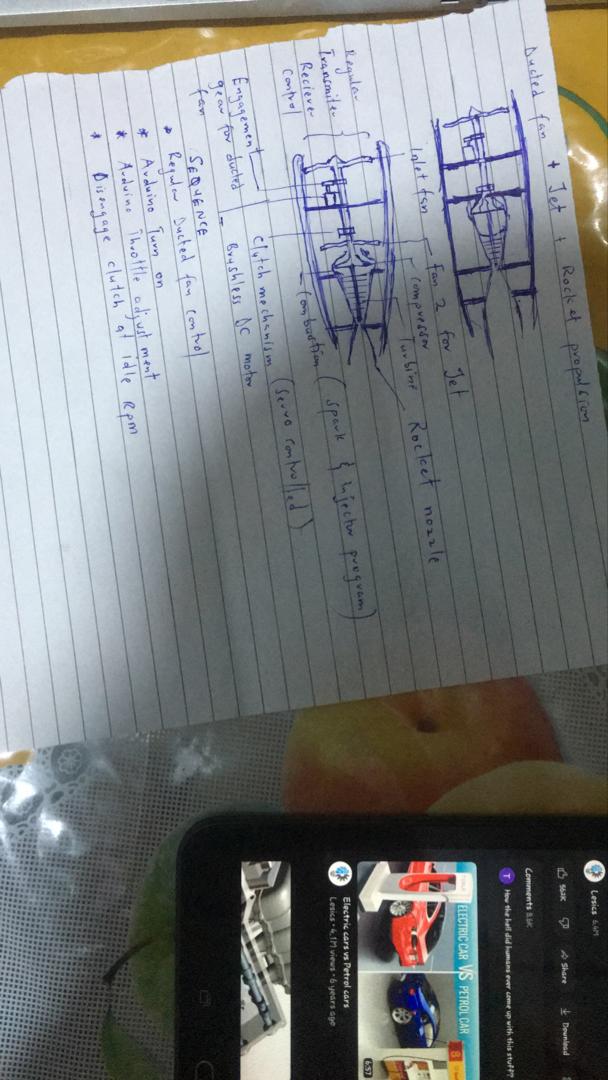 Ducted fan + Jet + Rocket propulsion
Inlet fan
Fan 2 for Jet
compressor
Turbine
Rocket nozzle
Regular
Transmiter
Reciever
Control
Combustion (spark & injector program)
Clutch mechanism (servo controlled)
Brushless DC motor
Engagement
gear for ducted
fan
SEQUENCE
* Regular Ducted fan control
* Arduino Turn on
* Arduino Throttle adjustment
* Disengage clutch at idle Rpm
Lesics 6.4M
562K
Share
Download
Comments 8.6K
T
How the hell did humans ever come up with this stuff?
ELECTRIC CAR VS PETROL CAR
6:57
Electric cars vs Petrol cars
Lesics • 4.1M views • 6 years ago